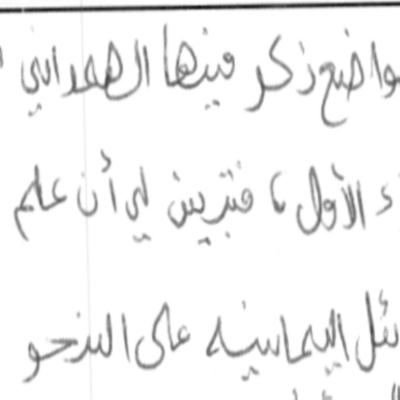 مواضع ذكر فيها الهمداني
ء الأول، فتبين لي أن علم
ئل اليمانية على النحو